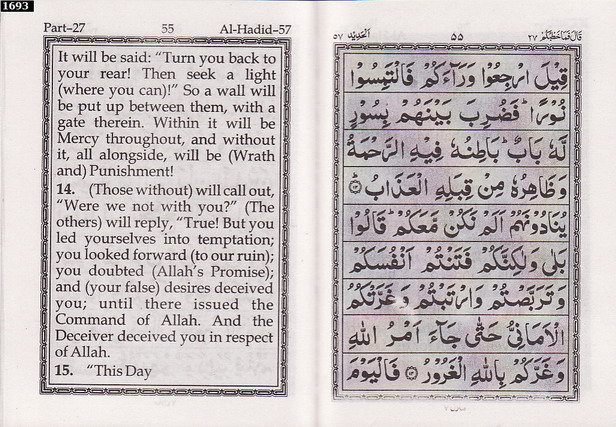 1693
Part-27 55 Al-Hadid-57
It will be said: “Turn you back to
your rear! Then seek a light
(where you can)!” So a wall will
be put up between them, with a
gate therein. Within it will be
Mercy throughout, and without
it, all alongside, will be (Wrath
and) Punishment!
14. (Those without) will call out,
“Were we not with you?” (The
others) will reply, “True! But you
led yourselves into temptation;
you looked forward (to our ruin);
you doubted (Allah’s Promise);
and (your false) desires deceived
you; until there issued the
Command of Allah. And the
Deceiver deceived you in respect
of Allah.
15. “This Day
قال فما خطبكم ٢٧ ٥٥ الحديد ٥٧
قِيلَ ارْجِعُوا وَرَآءَكُمْ فَالْتَمِسُوا
نُوْرًا ؕ فَضُرِبَ بَيْنَهُمْ بِسُوْرٍ
لَّهٗ بَابٌ ؕ بَاطِنُهٗ فِيْهِ الرَّحْمَةُ
وَظَاهِرُهٗ مِنْ قِبَلِهِ الْعَذَابُ ؕ ۝١٣
يُنَادُوْنَهُمْ اَلَمْ نَكُنْ مَّعَكُمْ ؕ قَالُوْا
بَلٰى وَلٰكِنَّكُمْ فَتَنْتُمْ اَنْفُسَكُمْ
وَتَرَبَّصْتُمْ وَارْتَبْتُمْ وَغَرَّتْكُمُ
الْاَمَانِيُّ حَتّٰى جَآءَ اَمْرُ اللّٰهِ
وَغَرَّكُمْ بِاللّٰهِ الْغَرُوْرُ ۝١٤ فَالْيَوْمَ